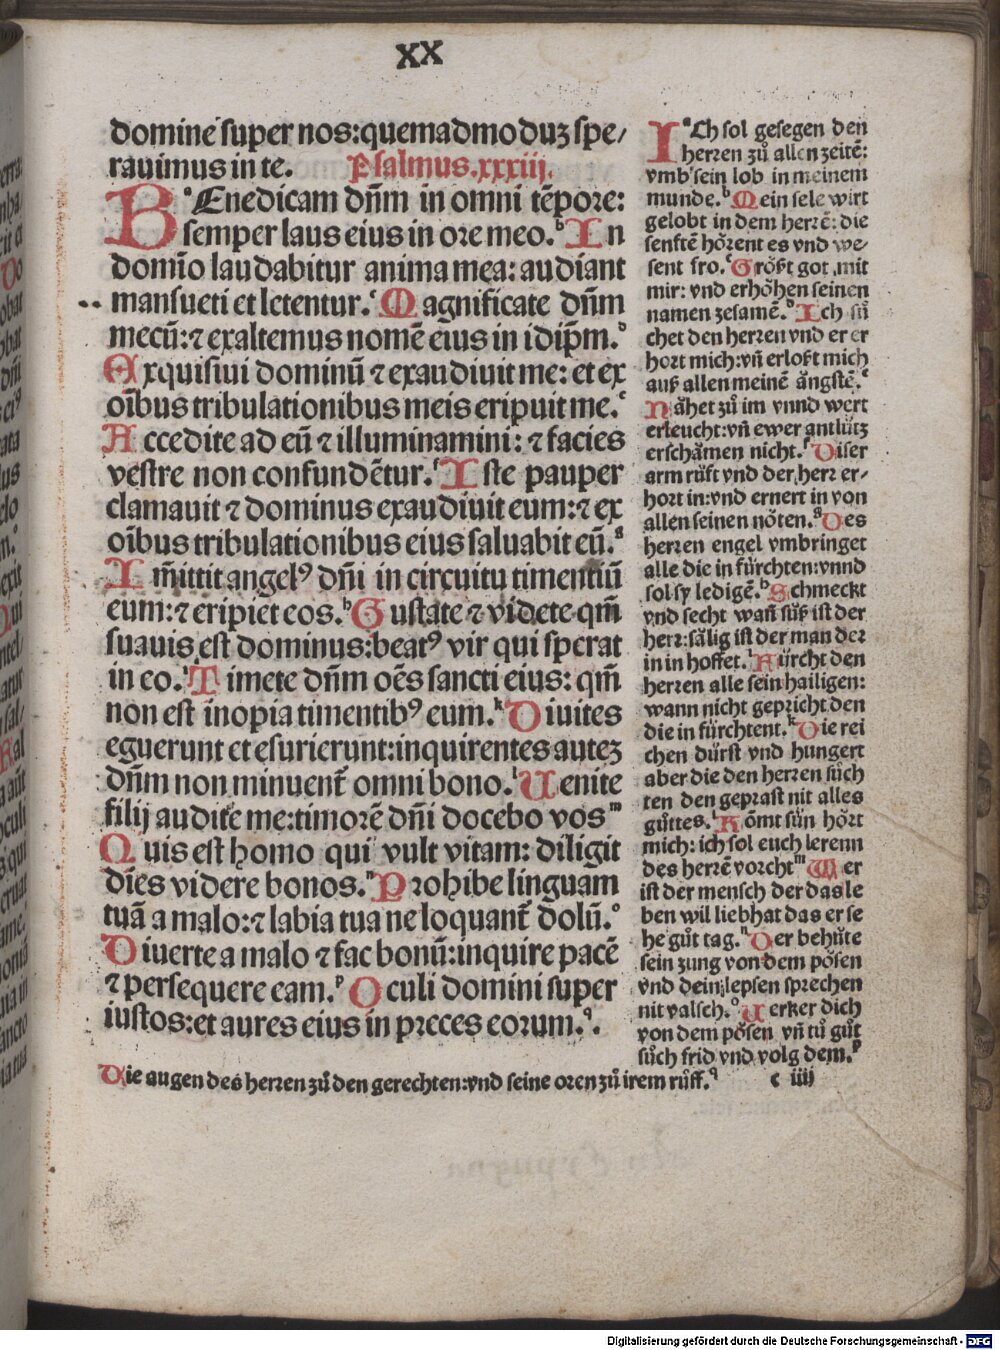 XX
domine super nos:quemadmoduz spe/
rauimus in te. Psalmus.xxxiij.
BEnedicam dñm in omni tẽpore:
semper laus eius in ore meo.ᵇ In
domĩo laudabitur anima mea: audiant
mansueti et letentur.ᶜ Magnificate dñm
mecũ:⁊ exaltemus nomẽ eius in idip̃m.ᵈ
Exquisiui dominũ ⁊ exaudiuit me: et ex
oĩbus tribulationibus meis eripuit me.ᵉ
Accedite ad eũ ⁊ illuminamini: ⁊ facies
vestre non confundẽtur.ᶠ Iste pauper
clamauit ⁊ dominus exaudiuit eum:⁊ ex
oĩbus tribulationibus eius saluabit eũ.ᵍ
Im̃ittit angelꝰ dñi in circuitu timentiũ
eum:⁊ eripiet eos.ʰ Gustate ⁊ videte qm̃
suauis est dominus:beatꝰ vir qui sperat
in eo.ⁱ Timete dñm oẽs sancti eius: qm̃
non est inopia timentibꝰ eum.ᵏ Diuites
eguerunt et esurierunt:inquirentes autez
dñm non minuent̃ omni bono.ˡ Uenite
filij audite me:timorẽ dñi docebo vosᵐ
Quis est homo qui vult vitam: diligit
dies videre bonos.ⁿ Prohibe linguam
tuã a malo:⁊ labia tua ne loquant̃ dolũ.ᵒ
Diuerte a malo ⁊ fac bonũ:inquire pacẽ
⁊ persequere eam.ᵖ Oculi domini super
iustos:et aures eius in preces eorum.ᑫ.
ICh sol gesegen den
herren zů allen zeitẽ:
vmb sein lob in meinem
munde.ᵇ Mein sele wirt
gelobt in dem herrẽ: die
senftẽ hörent es vnd we-
sent fro.ᶜ Gröst got mit
mir: vnd erhöhen seinen
namen zesamẽ.ᵈ Ich sů
chet den herren vnd er er
hort mich:vñ erlost mich
auß allen meinẽ ängstẽ.ᵉ
Nähet zů im vnnd wert
erleucht:vñ ewer antlütz
erschämen nicht.ᶠ Diser
arm rüft vnd der herr er-
hort in:vnd ernert in von
allen seinen nöten.ᵍ Des
herren engel vmbringet
alle die in fürchten:vnnd
sol sy ledigẽ.ʰ Schmeckt
vnd secht wañ süß ist der
herr:sälig ist der man der
in in hoffet.ⁱ Fürcht den
herren alle sein hailigen:
wann nicht gepricht den
die in fürchtent.ᵏ Die rei
chen dürst vnd hungert
aber die den herren sůch
ten den geprast nit alles
gůttes.ˡ Kömt sün hört
mich: ich sol euch lerenn
des herrẽ vorchtᵐ Wer
ist der mensch der das le
ben wil liebhat das er se
he gůt tag.ⁿ Der behüte
sein zung von dem pösen
vnd dein lepsen sprechen
nit valsch.ᵒ Uerker dich
von dem pösen vñ tů gůt
sůch frid vnd volg dem.ᵖ
Die augen des herren zů den gerechten:vnd seine oren zů irem růff.ᑫ c iiij
Digitalisierung gefördert durch die Deutsche Forschungsgemeinschaft - DFG